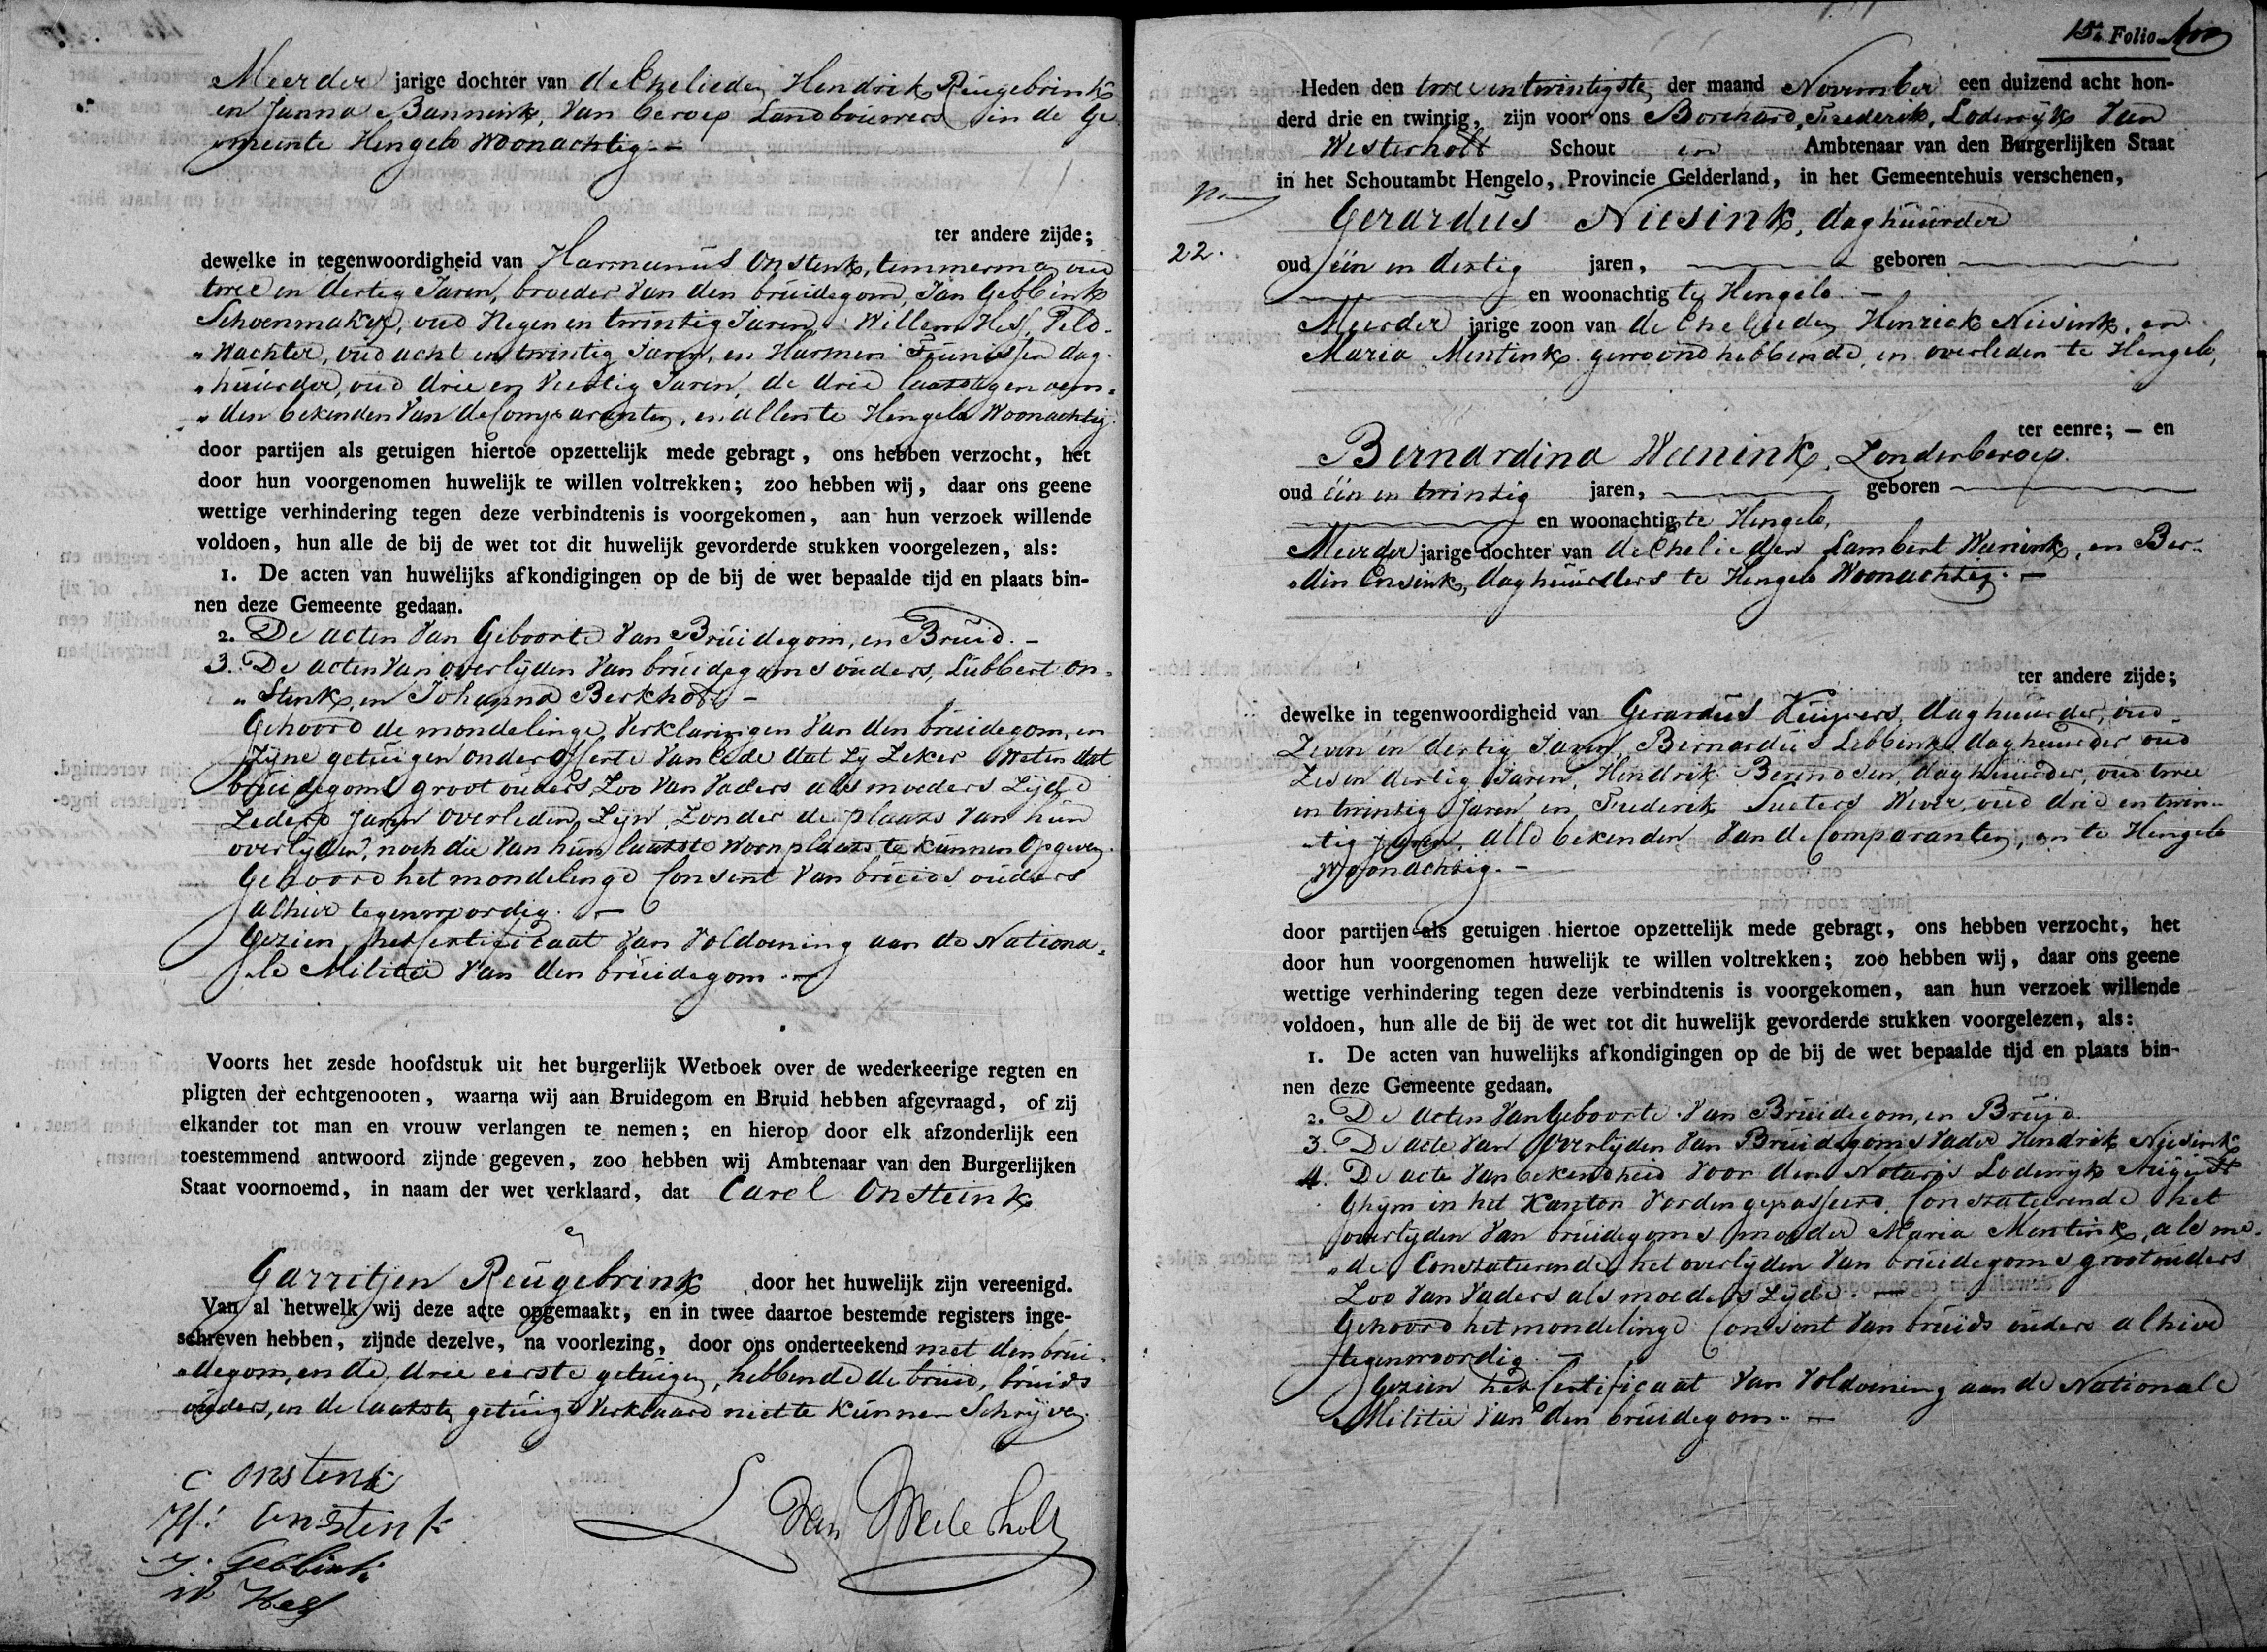 Meerder jarige dochter van de Ehelieden Hendrik Reugebrink
en Janna Bannink, Van beroep Landbouwers in de Ge
meente Hengelo Woonachtig. –
ter andere zijde;
dewelke in tegenwoordigheid van Harmanus Onstenk, temmerman oud
twee en dertig Jaren, broeder Van den bruidegom, Jan Gebbink
Schoenmaker, oud Negen en twintig Jaren, Willem Hes, Veld-
„Wachter, oud acht en twintig Jaren, en Harmen Teunissen dag-
„huurder, oud drie en Veertig Jaren, de drie laatstgenoem-
„den bekenden Van de Comparanten, en allen te Hengelo Woonachtig.
door partijen als getuigen hiertoe opzettelijk mede gebragt, ons hebben verzocht, het
door hun voorgenomen huwelijk te willen voltrekken; zoo hebben wij, daar ons geene
wettige verhindering tegen deze verbindtenis is voorgekomen, aan hun verzoek willende
voldoen, hun alle de bij de wet tot dit huwelijk gevorderde stukken voorgelezen, als:
1. De acten van huwelijks afkondigingen op de bij de wet bepaalde tijd en plaats bin-
nen deze Gemeente gedaan.
2. De acten Van Geboorte Van Bruidegom, en Bruid. –
3. De acten Van overlijden Van bruidegoms ouders, Lubbert On-
„Stenk, en Johanna Berkhott –
Gehoord de mondelinge Verklaringen Van den bruidegom, en
Zijne getuigen onder offerte Van Eede dat Zij Zeker Weten dat
bruidegoms groot ouders, Zoo Van Vaders als moeders Zijde
Zedert Jaren overleden Zijn, Zonder de plaats Van hun
overlijden, noch die Van hun laatste Woonplaats te kunnen Opgeven.
Gehoord het mondelinge Consent Van bruids ouders
alhier tegenwoordig. –
Gezien het Certificaat Van Voldoening aan de Nationa-
„le Militie Van den bruidegom. –
Voorts het zesde hoofdstuk uit het burgerlijk Wetboek over de wederkeerige regten en
pligten der echtgenooten, waarna wij aan Bruidegom en Bruid hebben afgevraagd, of zij
elkander tot man en vrouw verlangen te nemen; en hierop door elk afzonderlijk een
toestemmend antwoord zijnde gegeven, zoo hebben wij Ambtenaar van den Burgerlijken
Staat voornoemd, in naam der wet verklaard, dat Carel Onsteink
en
Garritjen Reugebrink door het huwelijk zijn vereenigd.
Van al hetwelk wij deze acte opgemaakt, en in twee daartoe bestemde registers inge-
schreven hebben, zijnde dezelve, na voorlezing, door ons onderteekend met den brui-
„degom, en de drie eerste getuigen, hebbende de bruid, bruids
ouders, en de laatste getuige Verklaard niet te kunnen Schrijven.
C Onstenk
H: Onstenk
J. Gebbink
W Hes
L Van Westerholt
15e Folio
Heden den twee en twintigste der maand November een duizend acht hon-
derd drie en twintig, zijn voor ons Borchard, Frederik, Lodewijk Van
Westerholt Schout en Ambtenaar van den Burgerlijken Staat
in het Schoutambt Hengelo, Provincie Gelderland, in het Gemeentehuis verschenen,
No
22.
Gerardus Niesink, daghuurder
oud één en dertig jaren, geboren
en woonachtig te Hengelo. –
Meerder jarige zoon van de Ehelieden Henrick Niesink, en
Maria Mentink gewoond hebbende en overleden te Hengelo,
ter eenre; — en
Bernardina Wunink, Zonder beroep.
oud één en twintig jaren, geboren
en woonachtig te Hengelo,
Meerder jarige dochter van de Ehelieden Lambert Wunink, en Ber-
„din Ensink, daghuurders te Hengelo Woonachtig. –
ter andere zijde;
dewelke in tegenwoordigheid van Gerardus Kuijpers, daghuurder, oud
Zeven en dertig Jaren, Bernardus Lebbink daghuurder oud
Zes en dertig Jaren, Hendrik Berendsen daghuurder, oud twee
en twintig Jaren en Frederik Sueters Wever, oud drie en twin-
„tig jaren, alle bekenden Van de Comparanten, en te Hengelo
Woonachtig. –
door partijen als getuigen hiertoe opzettelijk mede gebragt, ons hebben verzocht, het
door hun voorgenomen huwelijk te willen voltrekken; zoo hebben wij, daar ons geene
wettige verhindering tegen deze verbindtenis is voorgekomen, aan hun verzoek willende
voldoen, hun alle de bij de wet tot dit huwelijk gevorderde stukken voorgelezen, als:
1. De acten van huwelijks afkondigingen op de bij de wet bepaalde tijd en plaats bin-
nen deze Gemeente gedaan.
2. De acten Van Geboorte Van Bruidegom, en Bruid.
3. De acte Van Overlijden Van Bruidegoms Vader Hendrik Niesink
4. De acte Van bekendheid Voor den Notaris Lodewijk
Ghijm in het Kanton Vorden gepasseerd, Constateerende het
overlijden Van bruidegoms moeder Maria Mentink, als me-
„de Constateerende het overlijden Van bruidegoms grootouders
Zoo Van Vaders als moeders Zijde. –
Gehoord het mondelinge Consent Van bruids ouders alhier
tegenwoordig. –
Gezien het Certificaat Van Voldoening aan de Nationale
Militie Van den bruidegom. –